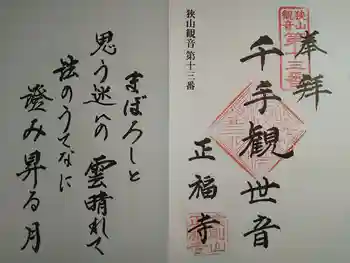 奉拝
狭山
観音
第十三番
千手観世音
正福寺
狭山観音 第十三番
まぼろしと
思う迷の雲晴れて
法のうてなに
澄み昇る月